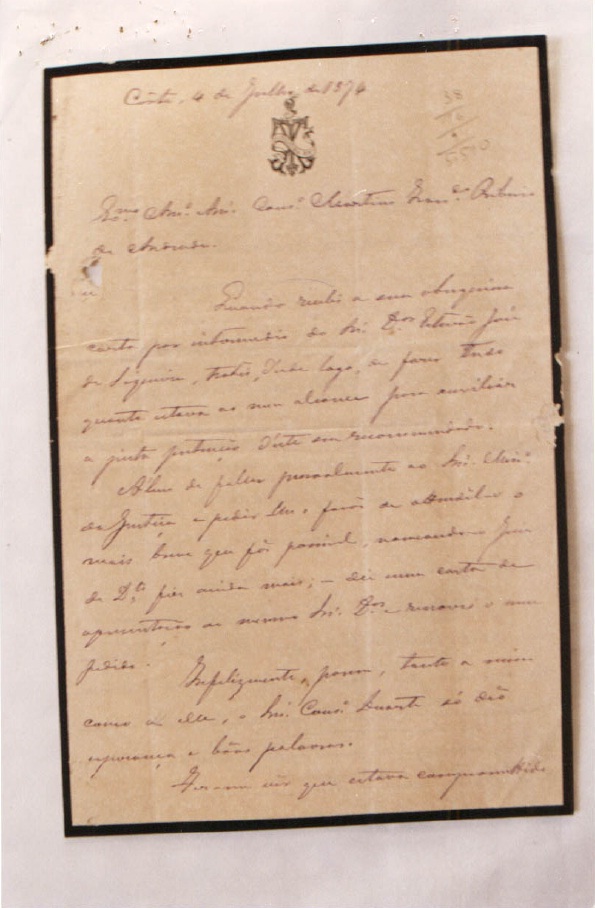 Côrte, 4 de Julho de 1874
38
Exmo Amo Snr. Consº Martim Franco Ribeiro
de Andrada.
Quando recebi a sua obsequiosa
carta por intermedio do Snr. Dor Estevão José
de Siqueira, tratei, desde logo, de fazer tudo
quanto estava ao meu alcance para auxiliar
a justa pretenção d'este seu recommendado.
Além de fallar pessoalmente ao Snr. Minº
da Justiça e pedir-lhe o favor de attendel-o o
mais breve que fôr possivel, nomeando-o Juiz
de Dto fiz ainda mais; – dei uma carta de
apresentação ao mesmo Snr. Dor e renovei o meu
pedido.
Infelizmente, porem, tanto a mim
como a elle, o Snr. Consº Duarte só deo
esperança e bôas palavras.
que estava compromettido